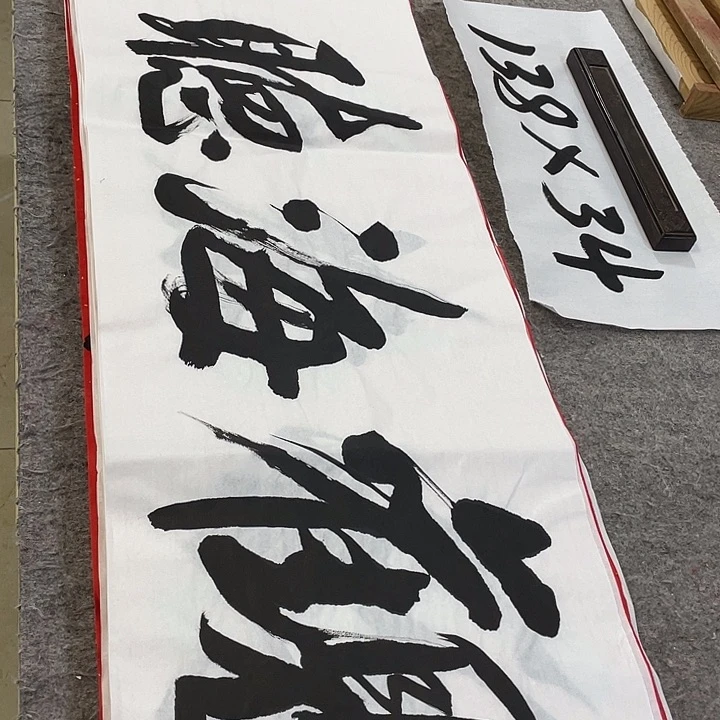 聽海
138×34